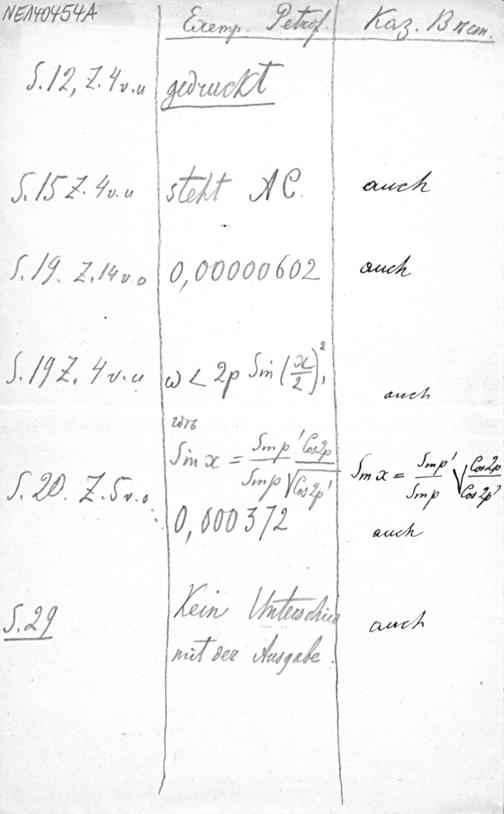 NE140454A
Exemp. Petrof. Kaz. Вѣст.
S. 12, Z. 4 v. u gedruckt
S. 15 Z. 4 v. u steht AC. auch
S. 19. Z. 14 v. o 0,00000602 auch
S. 19 Z. 4 v. u ω < 2p Sin (x/2)², auch
Sin x = Sin p' Cos 2p / Sin p √Cos 2p' Sin x = Sin p' / Sin p √Cos 2p / Cos 2p'
S. 20. Z. 5 v. o 0,000372 auch
S. 29 Kein Unterschied auch
mit der Ausgabe.